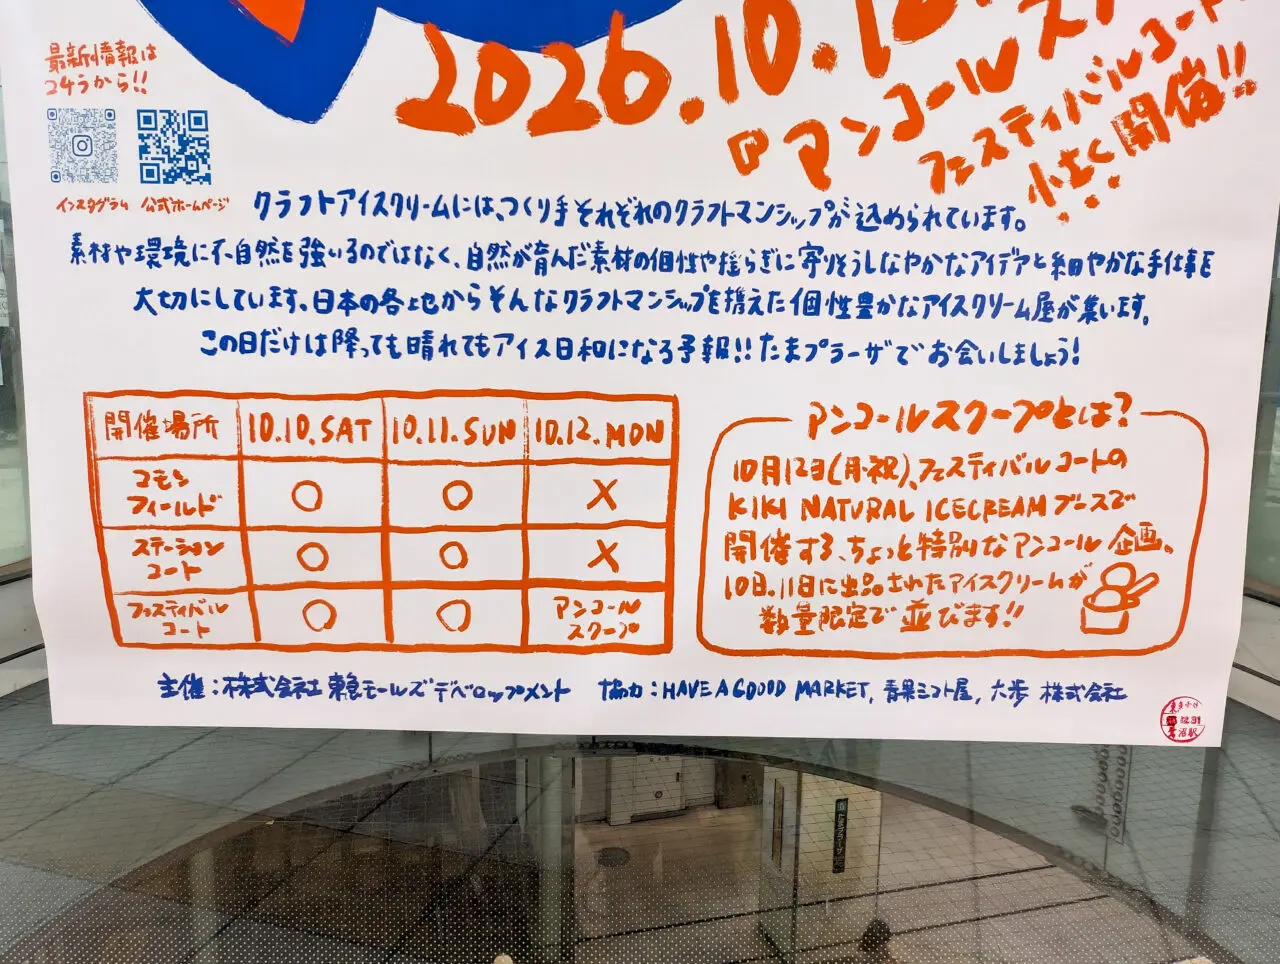 2026.10.12
アンコールス
フェスティバルコート
小さく開催!!
最新情報は
こちらから!!
インスタグラム 公式ホームページ
クラフトアイスクリームには、つくり手それぞれのクラフトマンシップが込められています。
素材や環境に不自然を強いるのではなく、自然が育んだ素材の個性や揺らぎに寄りそうしなやかなアイデアと細やかな手仕事を
大切にしています。日本の各地からそんなクラフトマンシップを携えた個性豊かなアイスクリーム屋が集います。
この日だけは降っても晴れてもアイス日和になる予報!!たまプラーザでお会いしましょう!
開催場所 10.10.SAT 10.11.SUN 10.12.MON
コモンフィールド ○ ○ ×
ステーションコート ○ ○ ×
フェスティバルコート ○ ○ アンコールスクープ
アンコールスクープとは?
10月12日(月・祝)、フェスティバルコートの
KIKI NATURAL ICECREAMブースで
開催する、ちょっと特別なアンコール企画。
10日、11日に出品されたアイスクリームが
数量限定で並びます!!
主催:株式会社東急モールズデベロップメント 協力:HAVE A GOOOD MARKET, 青果ミコト屋, 大歩 株式会社
たまプラーザ